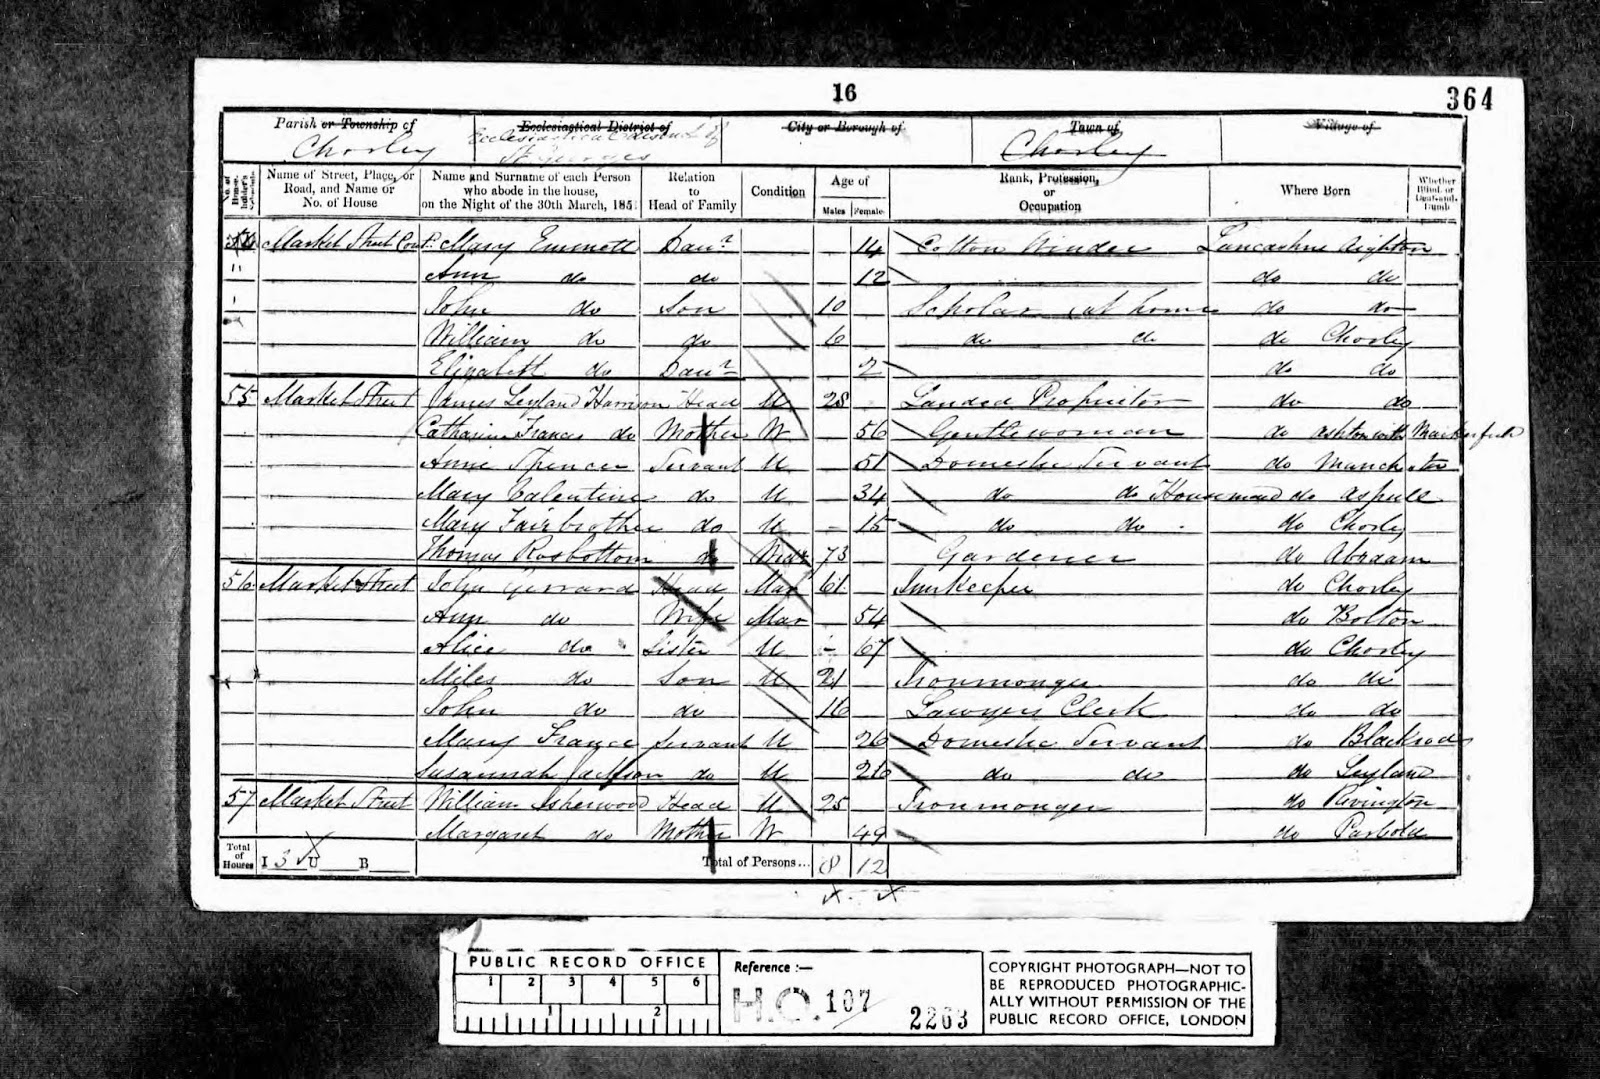 16
364
Parish or Township of
Chorley
Ecclesiastical District of
Ecclesiastical District of
St Georges
City or Borough of
Town of
Chorley
Village of
No. of House-holder's Schedule
Name of Street, Place, or Road, and Name or No. of House
Name and Surname of each Person who abode in the house, on the Night of the 30th March, 1851
Relation to Head of Family
Condition
Age of
Males Females
Rank, Profession, or Occupation
Where Born
Whether Blind, or Deaf-and-Dumb
54 Market Street Mary Emmett Daur 14 Cotton Winder Lancashire
Ann do do 12 do do
John do Son 10 Scholar at home do do
William do do 6 do do do Chorley
Elizabeth do Daur 2 do do
55 Market Street James Leyland Harrison Head U 28 Landed Proprietor do do
Catharine Frances do Mother W 56 Gentlewoman do Ashton
Anne Spencer Servant U 51 Domestic Servant do Manchester
Mary Valentine do U 34 do do Housemaid do Aspull
Mary Fairbrother do U 15 do do do Chorley
Thomas Rosbottom do Widr 73 Gardener do Abraam
56 Market Street John Gerrard Head Mar 61 Innkeeper do Chorley
Ann do Wife Mar 54 do Bolton
Alice do Sister U 67 do Chorley
Miles do Son U 21 Ironmonger do do
John do do 16 Lawyers Clerk do do
Mary France Servant U 26 Domestic Servant do Blackrod
Susannah Jackson do U do do do Leyland
57 Market Street William Isherwood Head U 25 Ironmonger do Rivington
Margaret do Mother W 49 do Parbold
Total of Houses I 3 U B Total of Persons... 8 12
PUBLIC RECORD OFFICE
1 2 3 4 5 6
1 2
Reference :—
H.O. 107
2263
COPYRIGHT PHOTOGRAPH—NOT TO
BE REPRODUCED PHOTOGRAPHIC-
ALLY WITHOUT PERMISSION OF THE
PUBLIC RECORD OFFICE, LONDON